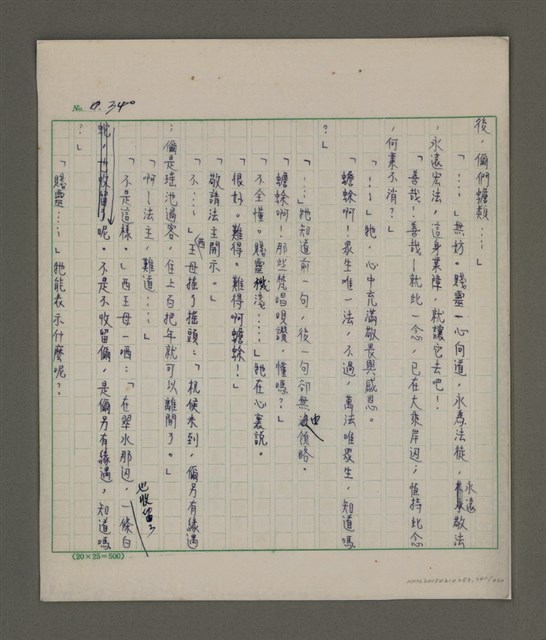 No. 9. 340
後，儞們蟾類…」
「…！」無妨。賤靈一心向道，永為法徒，永遠敬法
，永遠宏法，這身業障，就讓它去吧！
「善哉！善哉！就此一念，已在大乘岸迎；恆持此念
，何業不消？」
「…！」牠，心中充滿敬畏與感恩。
「蟾蜍啊！眾生唯一法，不過，萬法唯眾生，知道嗎
？」
「…」牠知道前一句，後一句卻無由領略。
「蟾蜍啊！那些梵唱唄讚，懂嗎？」
「不全懂。賤靈機淺…」牠在心裏說。
「很好。難得。難得啊蟾蜍！」
「敬請法主開示。」
「不…」西王母搖了搖頭：「機候未到，儞另有緣遇
；儞是瑤池過客，住上百把年就可以離開了。」
「啊！法主，難道…」
「不是這樣。」西王母一哂：「在翠水那迎，一條白
蛇，也收留了呢。不是不收留儞，是儞另有緣遇，知道嗎
？」
「賤靈…」牠能表示什麼呢？
(20×25=500)